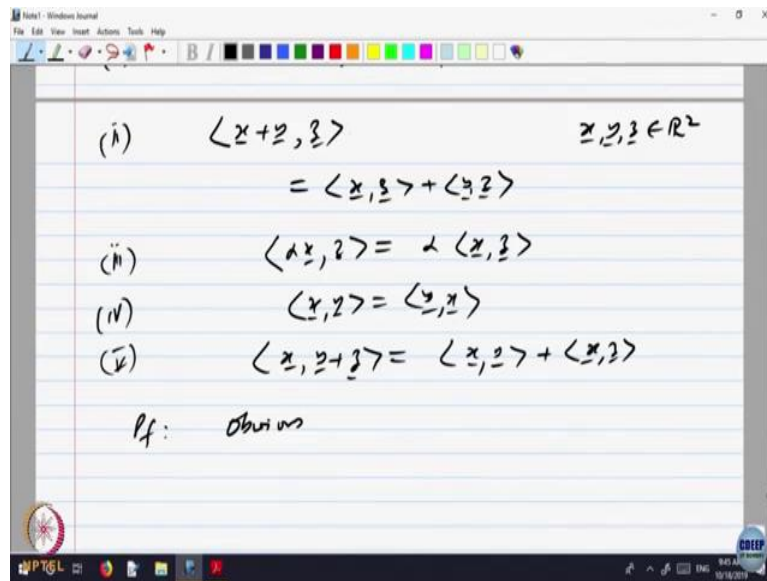 Note1 - Windows Journal
File Edit View Insert Actions Tools Help
B I
(ii) <x+y, z> x, y, z ∈ R²
= <x, z> + <y, z>
(iii) <αx, z> = α <x, z>
(iv) <x, y> = <y, x>
(v) <x, y+z> = <x, y> + <x, z>
Pf: Obvious
NPTEL
CDEEP
ENG 9:45 AM
10/16/2019